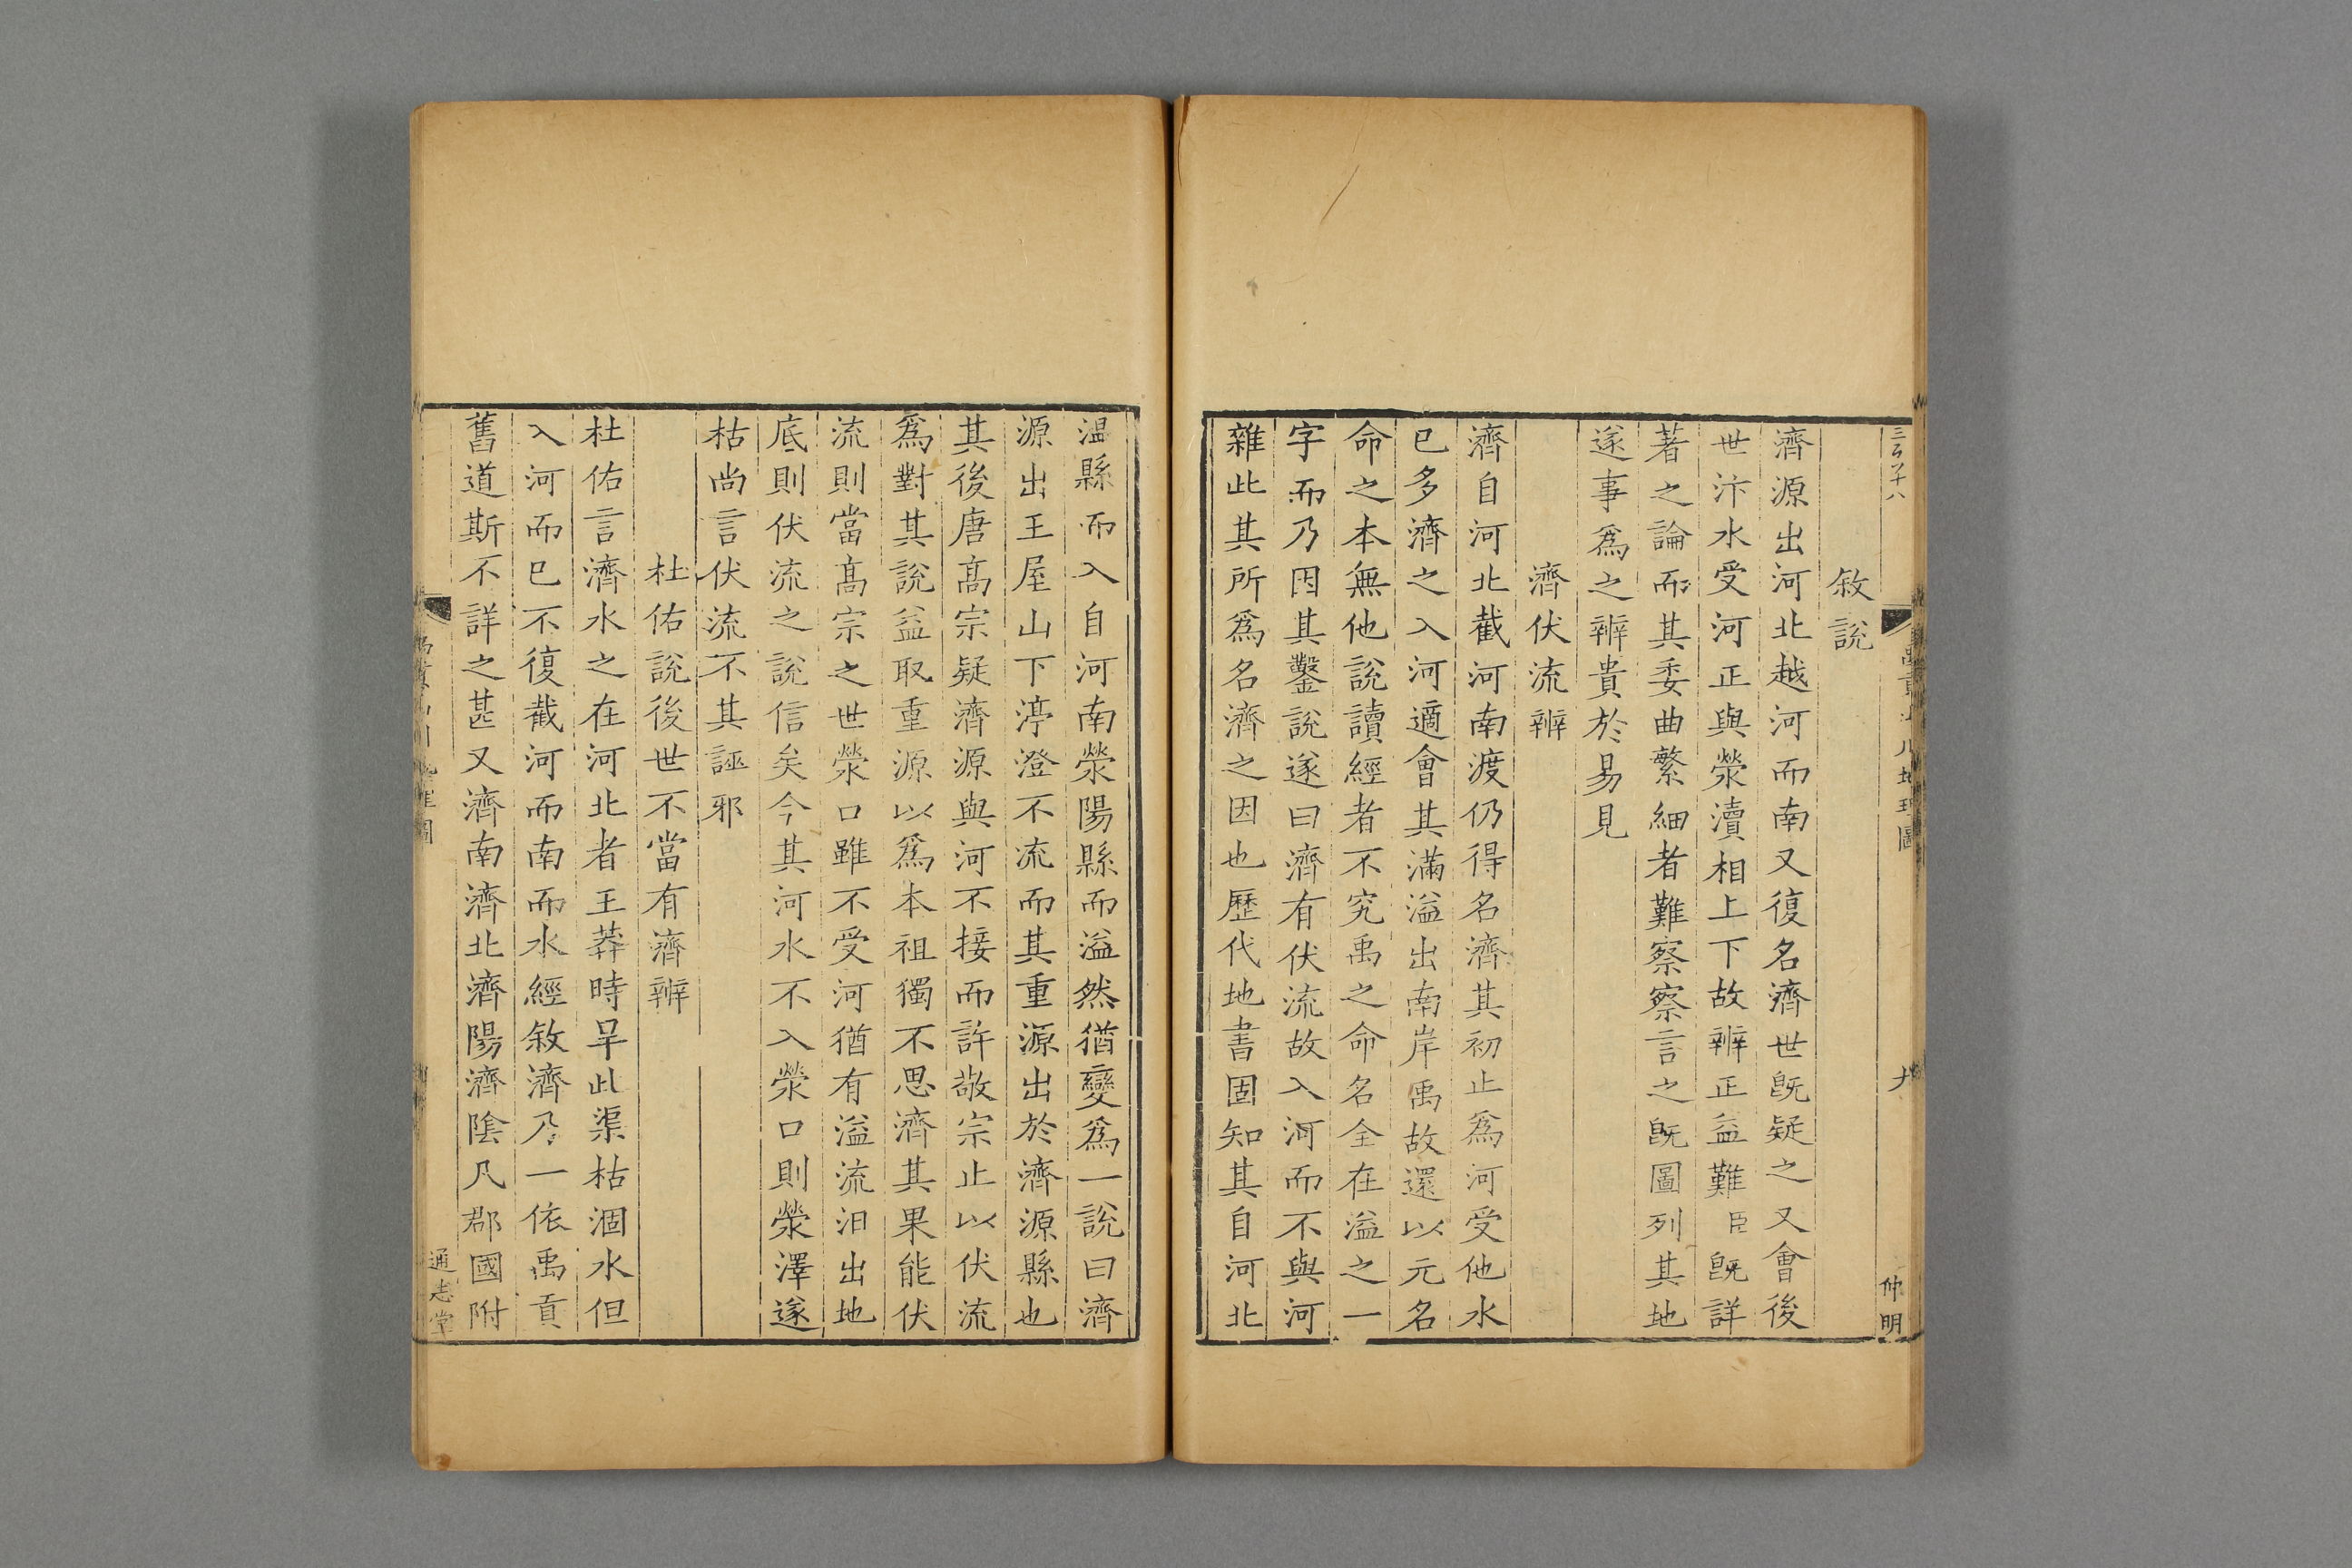 敘說
濟源出河北越河而南又復名濟世旣疑之又會後
世汴水受河正與滎瀆相上下故辨正益難臣旣詳
著之論而其委曲繁細者難察察言之旣圖列其地
遂事爲之辨貴於易見
濟伏流辨
濟自河北截河南渡仍得名濟其初止爲河受他水
已多濟之入河適會其滿溢出南岸禹故還以元名
命之本無他說讀經者不究禹之命名全在溢之一
字而乃因其鑿說遂曰濟有伏流故入河而不與河
雜此其所爲名濟之因也歷代地書固知其自河北
温縣而入自河南滎陽縣而溢然猶變爲一說曰濟
源出王屋山下渟澄不流而其重源出於濟源縣也
其後唐高宗疑濟源與河不接而許敬宗止以伏流
爲對其說益取重源以爲本祖獨不思濟其果能伏
流則當高宗之世滎口雖不受河猶有溢流汨出地
底則伏流之說信矣今其河水不入滎口則滎澤遂
枯尚言伏流不其誣邪
杜佑說後世不當有濟辨
杜佑言濟水之在河北者王莽時旱此渠枯涸水但
入河而已不復截河而南而水經敘濟乃一依禹貢
舊道斯不詳之甚又濟南濟北濟陽濟陰凡郡國附
通志堂
仲明